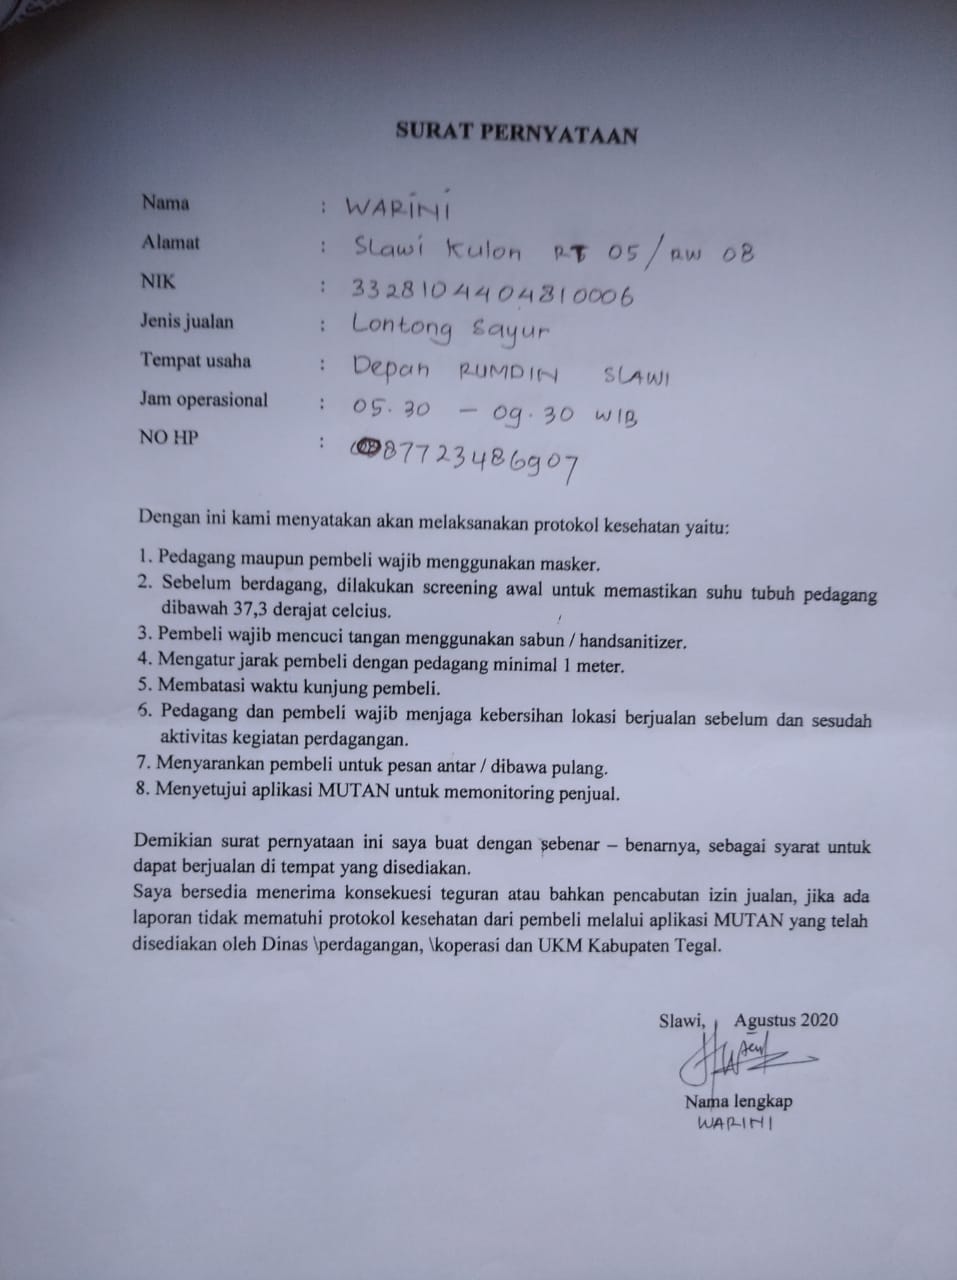 SURAT PERNYATAAN
Nama : WARINI
Alamat : Slawi Kulon RT 05/RW 08
NIK : 3328104404810006
Jenis jualan : Lontong Sayur
Tempat usaha : Depan RUMDIN SLAWI
Jam operasional : 05.30 – 09.30 WIB
NO HP : 087723486907
Dengan ini kami menyatakan akan melaksanakan protokol kesehatan yaitu:
1. Pedagang maupun pembeli wajib menggunakan masker.
2. Sebelum berdagang, dilakukan screening awal untuk memastikan suhu tubuh pedagang
dibawah 37,3 derajat celcius.
3. Pembeli wajib mencuci tangan menggunakan sabun / handsanitizer.
4. Mengatur jarak pembeli dengan pedagang minimal 1 meter.
5. Membatasi waktu kunjung pembeli.
6. Pedagang dan pembeli wajib menjaga kebersihan lokasi berjualan sebelum dan sesudah
aktivitas kegiatan perdagangan.
7. Menyarankan pembeli untuk pesan antar / dibawa pulang.
8. Menyetujui aplikasi MUTAN untuk memonitoring penjual.
Demikian surat pernyataan ini saya buat dengan sebenar – benarnya, sebagai syarat untuk
dapat berjualan di tempat yang disediakan.
Saya bersedia menerima konsekuesi teguran atau bahkan pencabutan izin jualan, jika ada
laporan tidak mematuhi protokol kesehatan dari pembeli melalui aplikasi MUTAN yang telah
disediakan oleh Dinas \perdagangan, \koperasi dan UKM Kabupaten Tegal.
Slawi, Agustus 2020
Nama lengkap
WARINI